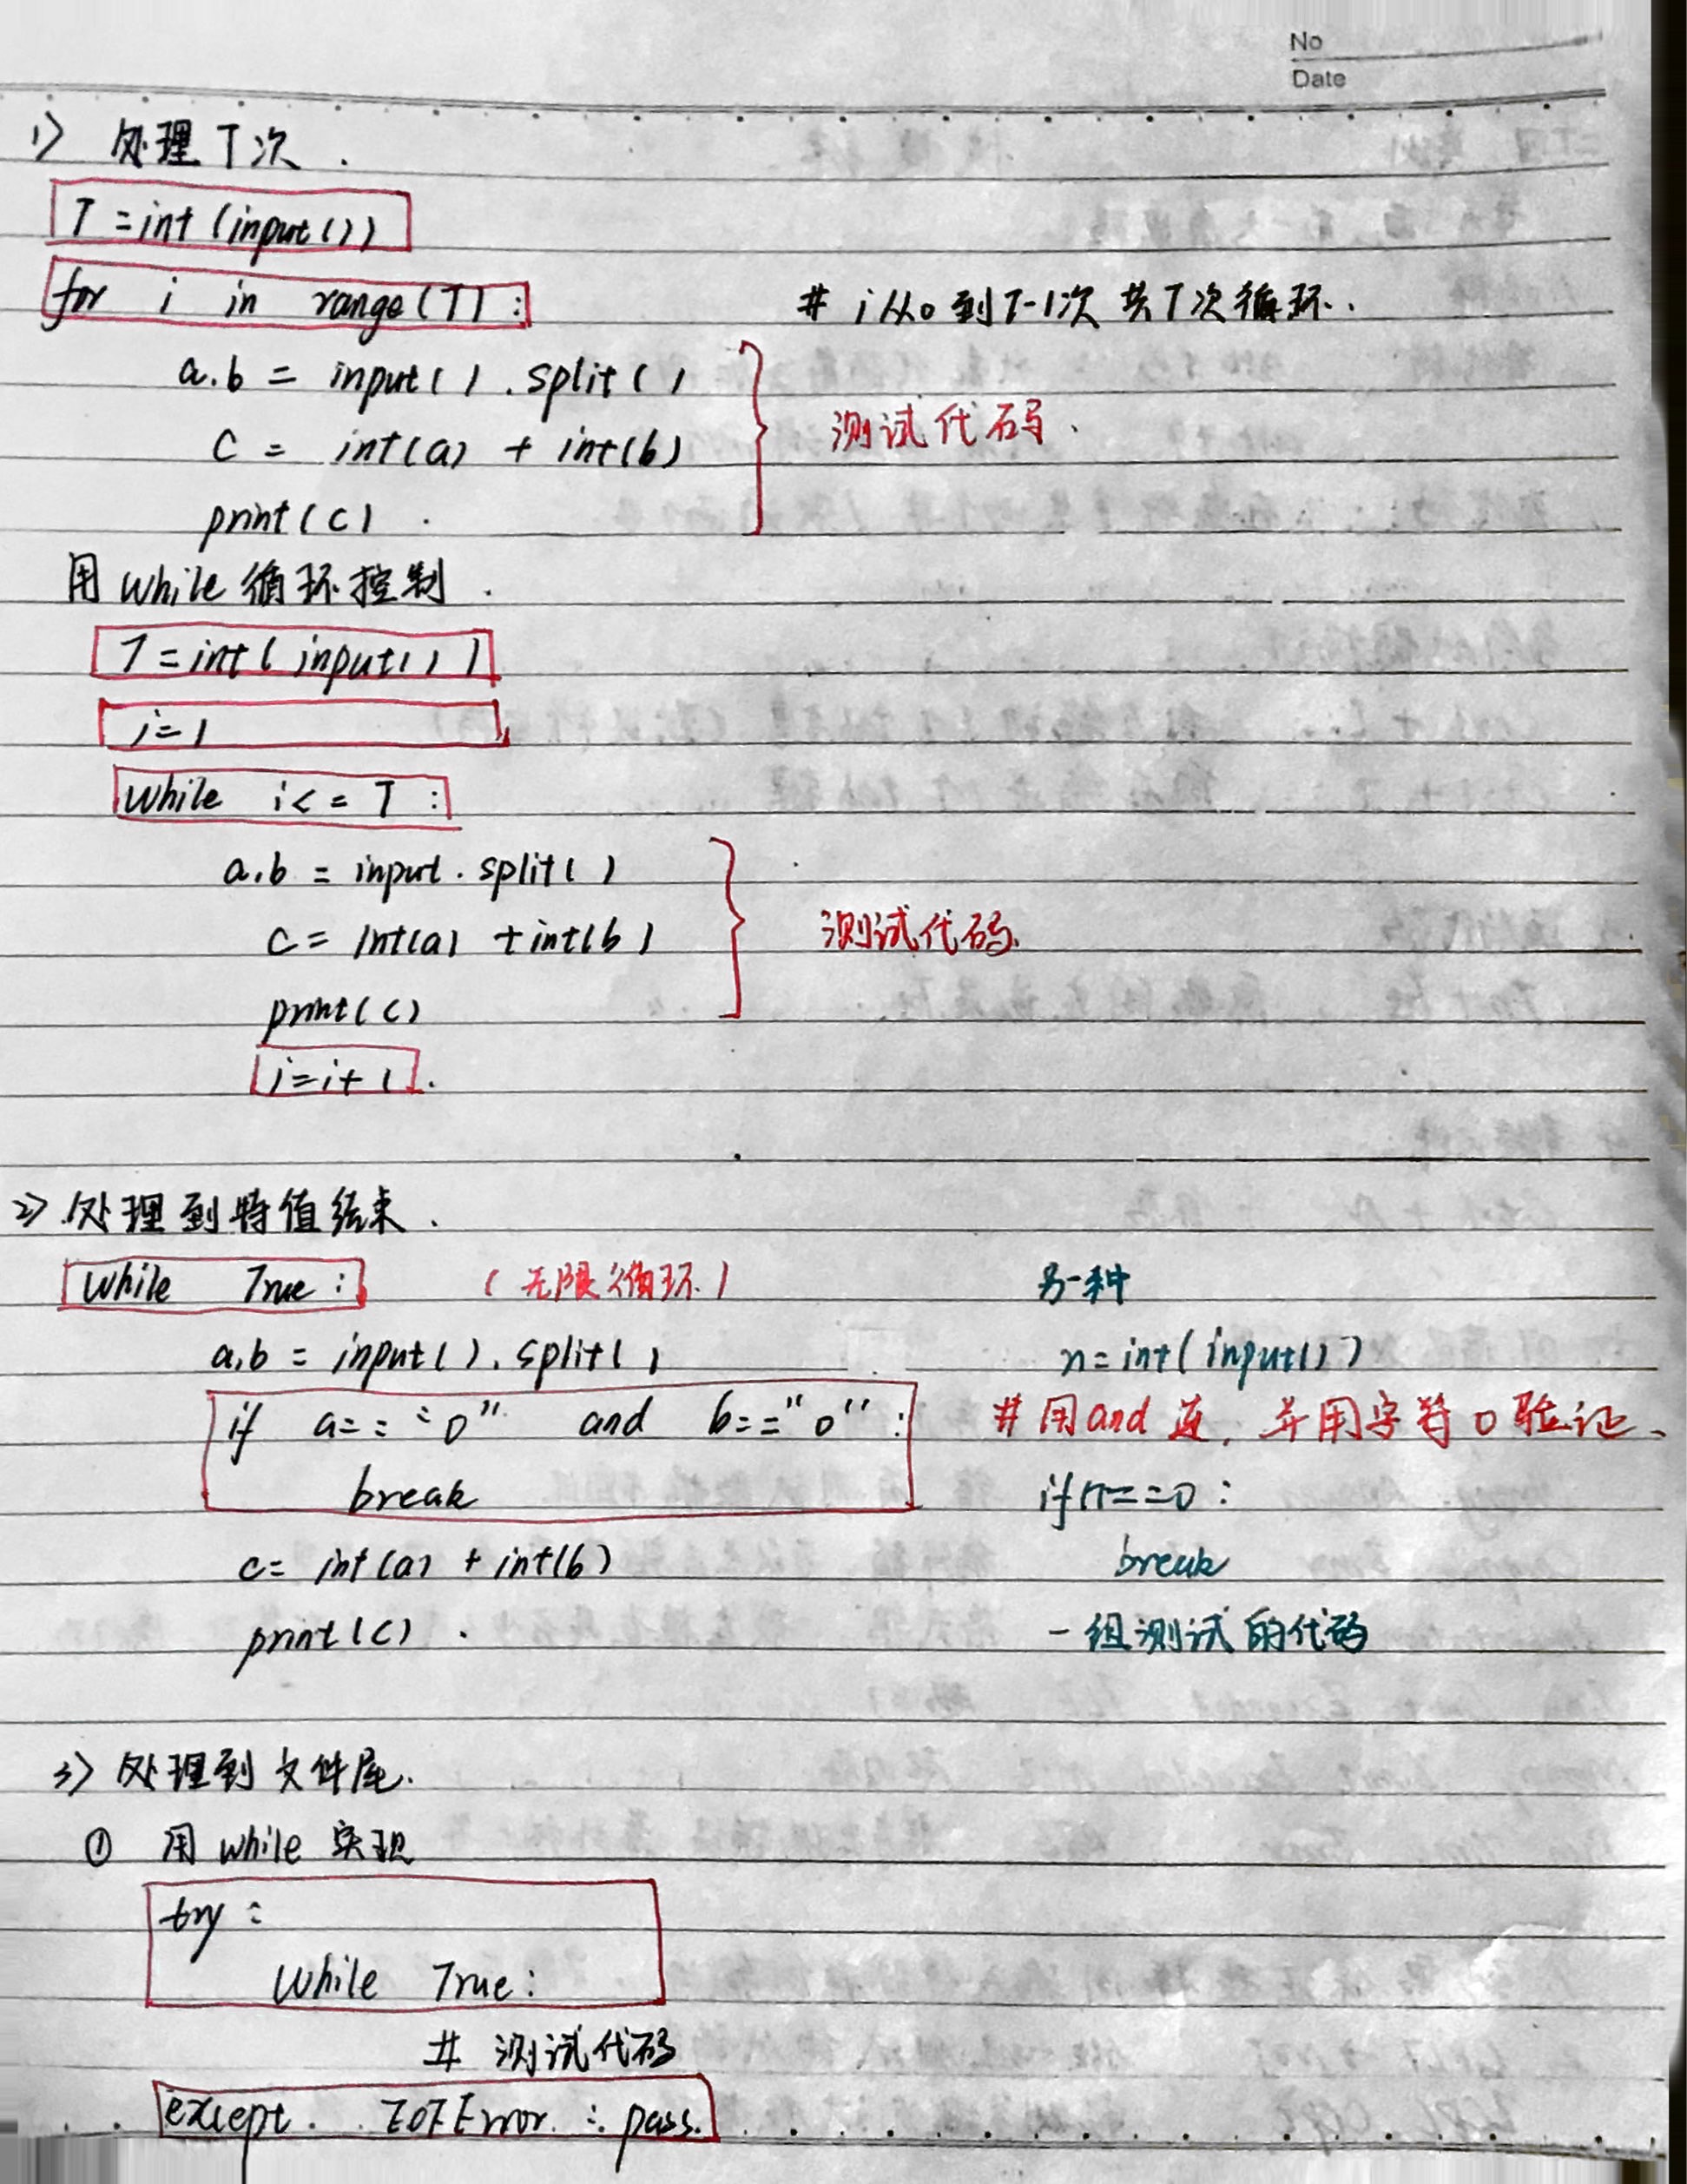 No
Date
1) 处理T次.
T=int(input())
for i in range(T):  # i从0到T-1次 共T次循环.
a.b = input().split()
C = int(a) + int(b)  测试代码.
print(c).
用while循环控制.
T=int(input())
i=1
while i<=T:
a,b = input.split()
c= int(a) +int(b)  测试代码.
print(c)
i=i+1.
2) 处理到特值结束.
while True:  (无限循环)  另一种
a,b = input().split()  n=int(input())
if a=="0" and b=="0":  # 用and连, 并用字符0验证.
break  if n==0:
c= int(a) + int(b)  break
print(c).  一组测试的代码
3) 处理到文件尾.
① 用while实现
try:
while True:
# 测试代码
except EOFError: pass.